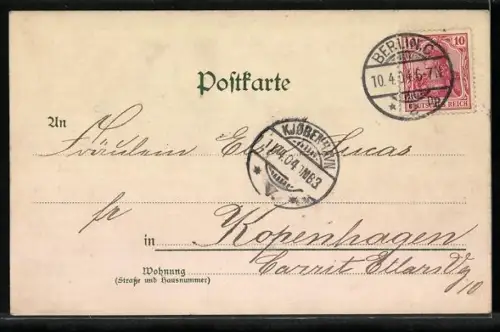 Postkarte
BERLIN.C.
10.4.04.6-7N
10
DEUTSCHES REICH
An
Fräulein Else Lucas
KJØBENHAVN
11.4.04 1MB3
fr
in Kopenhagen
Wohnung Carrit Etlars Vg
(Straße und Hausnummer) 10